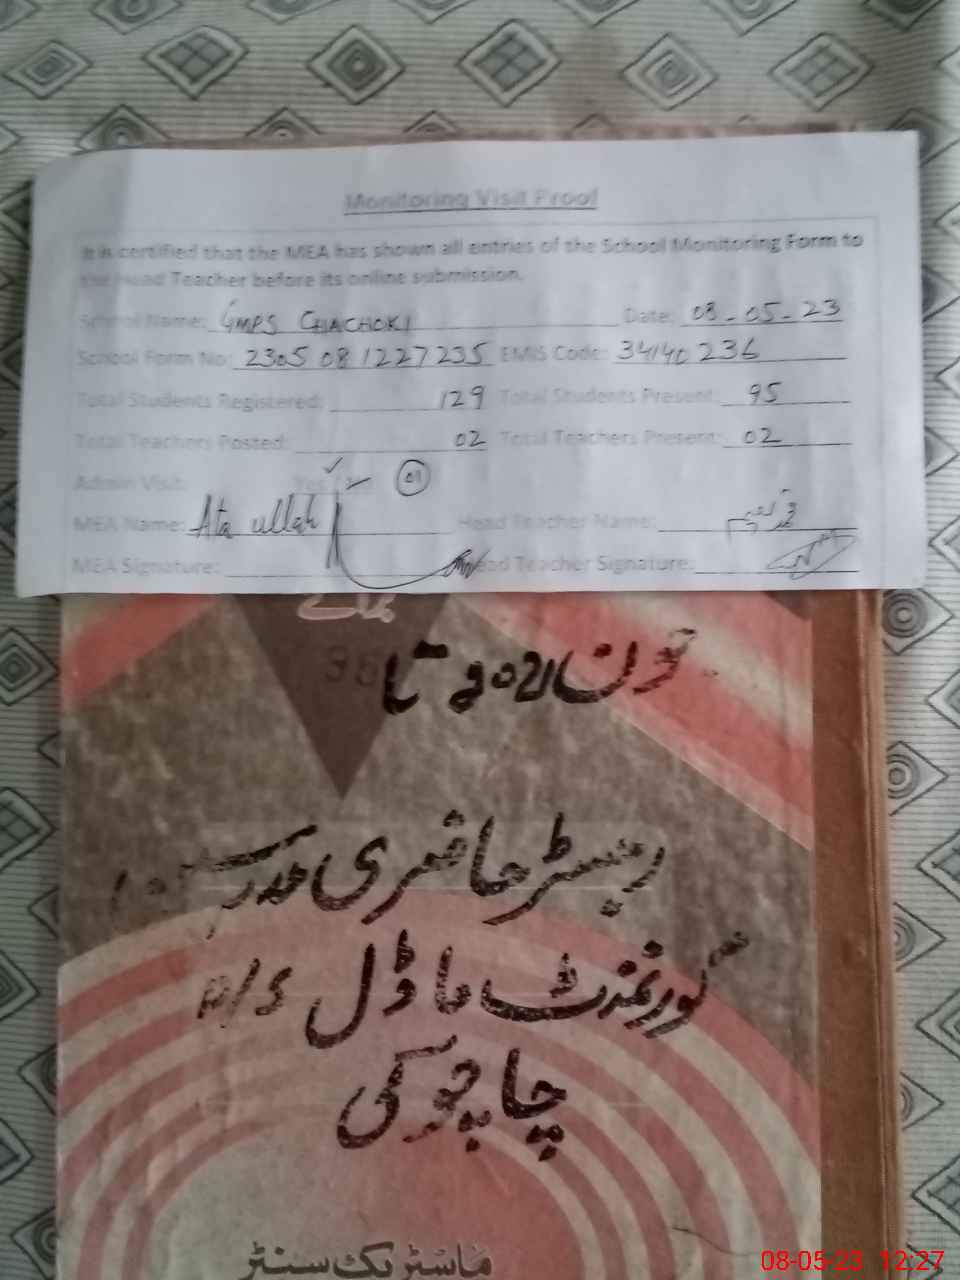 Monitoring Visit Proof
It is certified that the MEA has shown all entries of the School Monitoring Form to
the Head Teacher before its online submission.
School Name: GMPS CHACHOKI Date: 08-05-23
School Form No: 230508 1227235 EMIS Code: 34140236
Total Students Registered: 129 Total Students Present: 95
Total Teachers Posted: 02 Total Teachers Present: 02
Admin Visit: Yes 01
MEA Name: Ata ullah Head Teacher Name:
MEA Signature: Head Teacher Signature:
برائے
تا
رجسٹر حاضری مدرسین
گورنمنٹ ماڈل P/S
چاچوکی
ماسٹر بک سنٹر
08-05-23 12:27